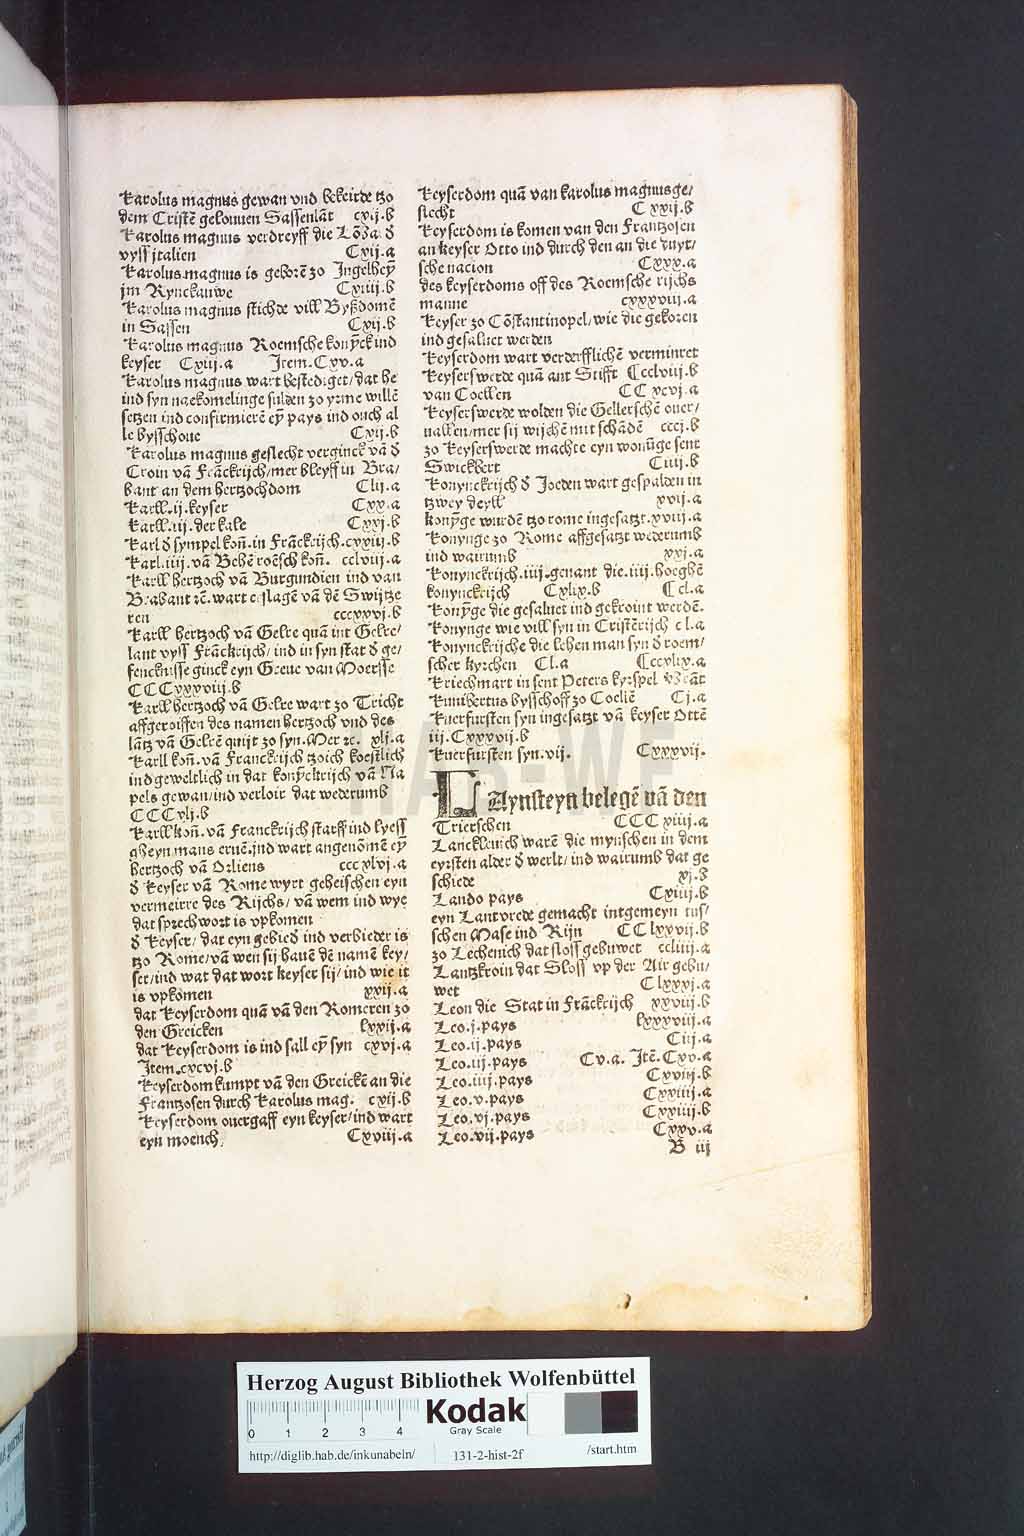 Karolus magnus gewan vnd bekeirde tzo
dem Cristē gelouuen Sassenlāt cxij.b
Karolus magnus verdreyff die Lōbar đ
vyss jtalien Cxij.a
Karolus magnus is geborē zo Ingelhey̅
jm Rynckauwe Cxiiij.b
Karolus magnus stichde vill Byßdomē
in Sassen Cxij.b
Karolus magnus Roemsche kony̅ck ind
keyser Cxiij.a Item.Cxv.a
Karolus magnus wart bestediget/dat he
ind syn naekomelinge sulden zo yrme willē
setzen ind confirmierē ey̅ pays ind ouch al
le bysschoue Cxij.b
Karolus magnus geslecht verginck vā đ
Croin vā Frāckrijch/mer bleyff in Bra/
bant an dem hertzochdom Clij.a
Karll.ij.keyser Cxx.a
Karll.iij.der kale Cxxj.b
Karl đ sympel kon̄.in Frāckrijch.cxxiij.b
Karl.iiij.vā Behē roēsch kon̄. cclviij.a
Karll hertzoch vā Burgundien ind van
Brabant ꝛē.wart erslagē vā dē Swijtze
ren cccxxvj.b
Karll hertzoch vā Gelre quā int Gelre/
lant vyss Frāckrijch/ind in syn stat đ ge/
fencknisse ginck eyn Greue van Moersse
CCCxxxviij.b
Karll hertzoch vā Gelre wart zo Tricht
affgeroiffen des namen hertzoch vnd des
lātz vā Gelrē quijt zo syn.Mer ꝛc. xlj.a
Karll kon̄.vā Franckrijch tzoich koestlich
ind geweltlich in dat kony̅ckrijch vā Na
pels gewan/ind verloir dat wederumb
CCCxlj.b
Karll kon̄.vā Franckrijch starff ind lyess
gheyn mans eruē.ind wart angenomē ey̅
hertzoch vā Orliens cccxlvj.a
đ Keyser vā Rome wyrt geheischen eyn
vermeirre des Rijchs/vā wem ind wye
dat sprechwort is vpkomen
đ Keyser/dat eyn gebied̄ ind verbieder is
tzo Rome/vā wen sij hauē dē namē key/
ser/ind wat dat wort keyser sij/ind wie it
is vpkomen xxij.a
dat Keyserdom quā vā den Romeren zo
den Greicken lxxij.a
dat Keyserdom is ind sall ey̅ syn cxvj.a
Item.cxcvj.b
Keyserdom kumpt vā den Greickē an die
Frantzosen durch Karolus mag. cxij.b
Keyserdom ouergaff eyn keyser/ind wart
eyn moench. Cxviij.a
Keyserdom quā van karolus magnus ge/
slecht Cxxij.b
Keyserdom is komen van den Frantzosen
an keyser Otto ind durch den an die duyt/
sche nacion Cxxx.a
des keyserdoms off des Roemsche rijchs
manne cxxxviij.a
Keyser zo Cōstantinopel/wie die gekoren
ind gesaluet werden
Keyserdom wart verderfflichē verminret
Keyserswerde quā ant Stifft Ccclviij.b
van Coellen CCxcvj.a
Keyserswerde wolden die Gellerschē ouer/
uallen/mer sij wijchē mit schādē cccj.b
zo Keyserswerde machte eyn wonūge sent
Swickbert Ciiij.b
Konynckrijch đ Joeden wart gespalden in
tzwey deyll xvij.a
kony̅ge wurdē tzo rome ingesatzt.xviij.a
Konynge zo Rome affgesatzt wederumb
ind wairumb xxj.a
Konynckrijch.iiij.genant die.iiij.hoeghē
konynckrijch Cxlix.b Ccl.a
Kony̅ge die gesaluet ind gekroint werdē.
Konynge wie vill syn in Cristērijch cl.a
Konynckrijche die lehen man syn đ roem/
scher kyrchen Cl.a Cccxlix.a
Kriechmart in sent Peters kyrspel
Kunibertus bysschoff zo Coellē Cj.a
Kuerfursten syn ingesatzt vā keyser Ottē
iij.Cxxxvij.b
Kuerfursten syn.vij. Cxxxvij.
LAynsteyn belegē vā den
Trierschen CCCxiiij.a
Lanckleuich warē die mynschen in dem
eyrsten alder đ werlt/ind wairumb dat ge
schiede xj.b
Lando pays Cxiiij.b
eyn Lantvrede gemacht intgemeyn tus/
schen Mase ind Rijn CClxxvij.b
zo Lechenich dat sloss gebuwet ccliiij.a
Lantzkroin dat Sloss vp der Air gebu/
wet Clxxxj.a
Leon die Stat in Frāckrijch xxviij.b
Leo.j.pays lxxxviij.a
Leo.ij.pays Ciij.a
Leo.iij.pays Cv.a. Itē.Cxv.a
Leo.iiij.pays Cxviij.b
Leo.v.pays Cxxiiij.a
Leo.vj.pays Cxxiiij.b
Leo.vij.pays Cxxv.a
B iij
HAB-WF
Herzog August Bibliothek Wolfenbüttel
0 1 2 3 4
Kodak
Gray Scale
http://diglib.hab.de/inkunabeln/ 131-2-hist-2f /start.htm